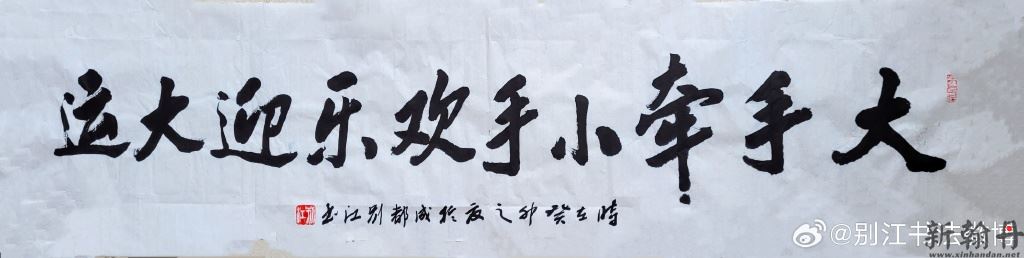 大手牵小手欢乐迎大运
時在癸卯之夏於成都别江书
@别江书法
新翰丹
www.xinhandan.net